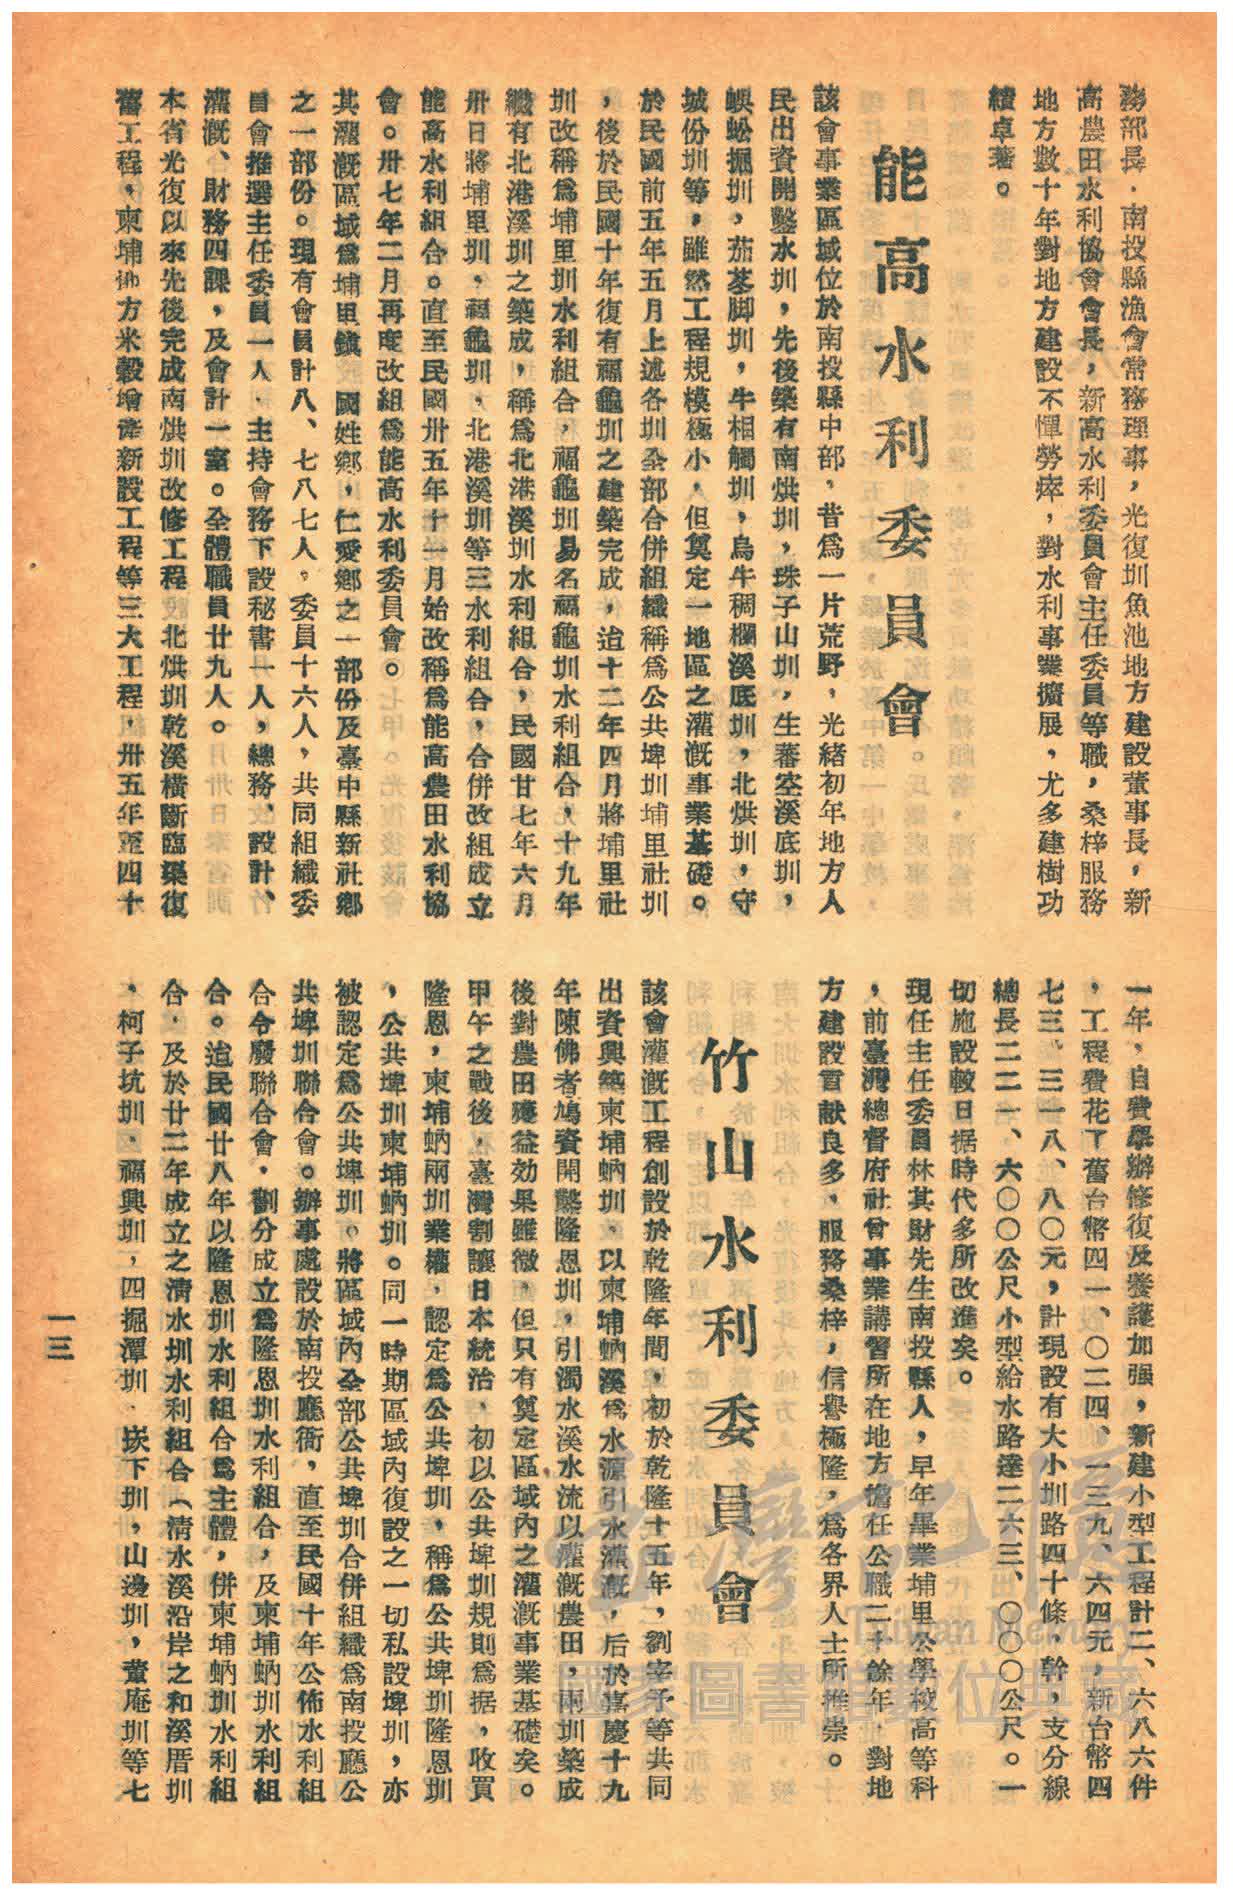 務部長．南投縣漁會常務理事，光復圳魚池地方建設董事長，新
高農田水利協會會長，新高水利委員會主任委員等職，桑梓服務
地方數十年對地方建設不憚勞瘁，對水利事業擴展，尤多建樹功
績卓著。
能高水利委員會
該會事業區域位於南投縣中部，昔爲一片荒野，光緒初年地方人
民出資開鑿水圳，先後築有南烘圳，珠子山圳，生蕃空溪底圳，
蜈蚣掘圳，茄苳脚圳，牛相觸圳，烏牛稠欄溪底圳，北烘圳，守
城份圳等，雖然工程規模極小，但奠定一地區之灌漑事業基礎。
於民國前五年五月上述各圳全部合併組織稱爲公共埤圳埔里社圳
，後於民國十年復有福龜圳之建築完成，迨十二年四月將埔里社
圳改稱爲埔里圳水利組合，福龜圳易名福龜圳水利組合，十九年
繼有北港溪圳之築成，稱爲北港溪圳水利組合，民國廿七年六月
卅日將埔里圳，福龜圳，北港溪圳等三水利組合，合併改組成立
能高水利組合。直至民國卅五年十一月始改稱爲能高農田水利協
會。卅七年二月再度改組爲能高水利委員會。
其灌漑區域爲埔里鎭，國姓鄉，仁愛鄉之一部份及臺中縣新社鄉
之一部份。現有會員計八、七八七人，委員十六人，共同組織委
員會推選主任委員一人．主持會務下設秘書一人，總務、設計、
灌漑、財務四課，及會計一室。全體職員廿九人。
本省光復以來先後完成南烘圳改修工程，北烘圳乾溪橫斷臨築復
舊工程，東埔地方米穀增產新設工程等三大工程，卅五年至四十
一年，自費舉辦修復及養護加强，新建小型工程計二、六八六件
，工程費花了舊台幣四一、〇二四、一三九、六四元，新台幣四
七三、三一八、八〇元，計現設有大小圳路四十條，幹，支分線
總長二二一、六〇〇公尺小型給水路達二六三、〇〇〇公尺。一
切施設較日据時代多所改進矣。
現任主任委員林其財先生南投縣人，早年畢業埔里公學校高等科
，前臺灣總督府社會事業講習所在地方擔任公職二十餘年，對地
方建設貢献良多，服務桑梓，信譽極隆，爲各界人士所推崇。
竹山水利委員會
該會灌漑工程創設於乾隆年間，初於乾隆十五年，劉宰予等共同
出資興築東埔蚋圳，以東埔蚋溪爲水源引水灌漑，后於嘉慶十九
年陳佛者鳩資開鑿隆恩圳，引濁水溪水流以灌漑農田，兩圳築成
後對農田獲益効果雖微，但只有奠定區域內之灌漑事業基礎矣。
甲午之戰後，臺灣割讓日本統治，初以公共埤圳規則爲据，收買
隆恩，東埔蚋兩圳業權，認定爲公共埤圳，稱爲公共埤圳隆恩圳
，公共埤圳東埔蚋圳。同一時期區域內復設之一切私設埤圳，亦
被認定爲公共埤圳。將區域內全部公共埤圳合併組織爲南投廳公
共埤圳聯合會。辦事處設於南投廳衙，直至民國十年公佈水利組
合令廢聯合會，劃分成立爲隆恩圳水利組合，及東埔蚋圳水利組
合。迨民國廿八年以隆恩圳水利組合爲主體，併東埔蚋圳水利組
合．及於廿二年成立之淸水圳水利組合（淸水溪沿岸之和溪厝圳
，柯子坑圳，福興圳，四掘潭圳．崁下圳，山邊圳，董庵圳等七
一三
臺灣記憶
Taiwan Memory
國家圖書館數位典藏